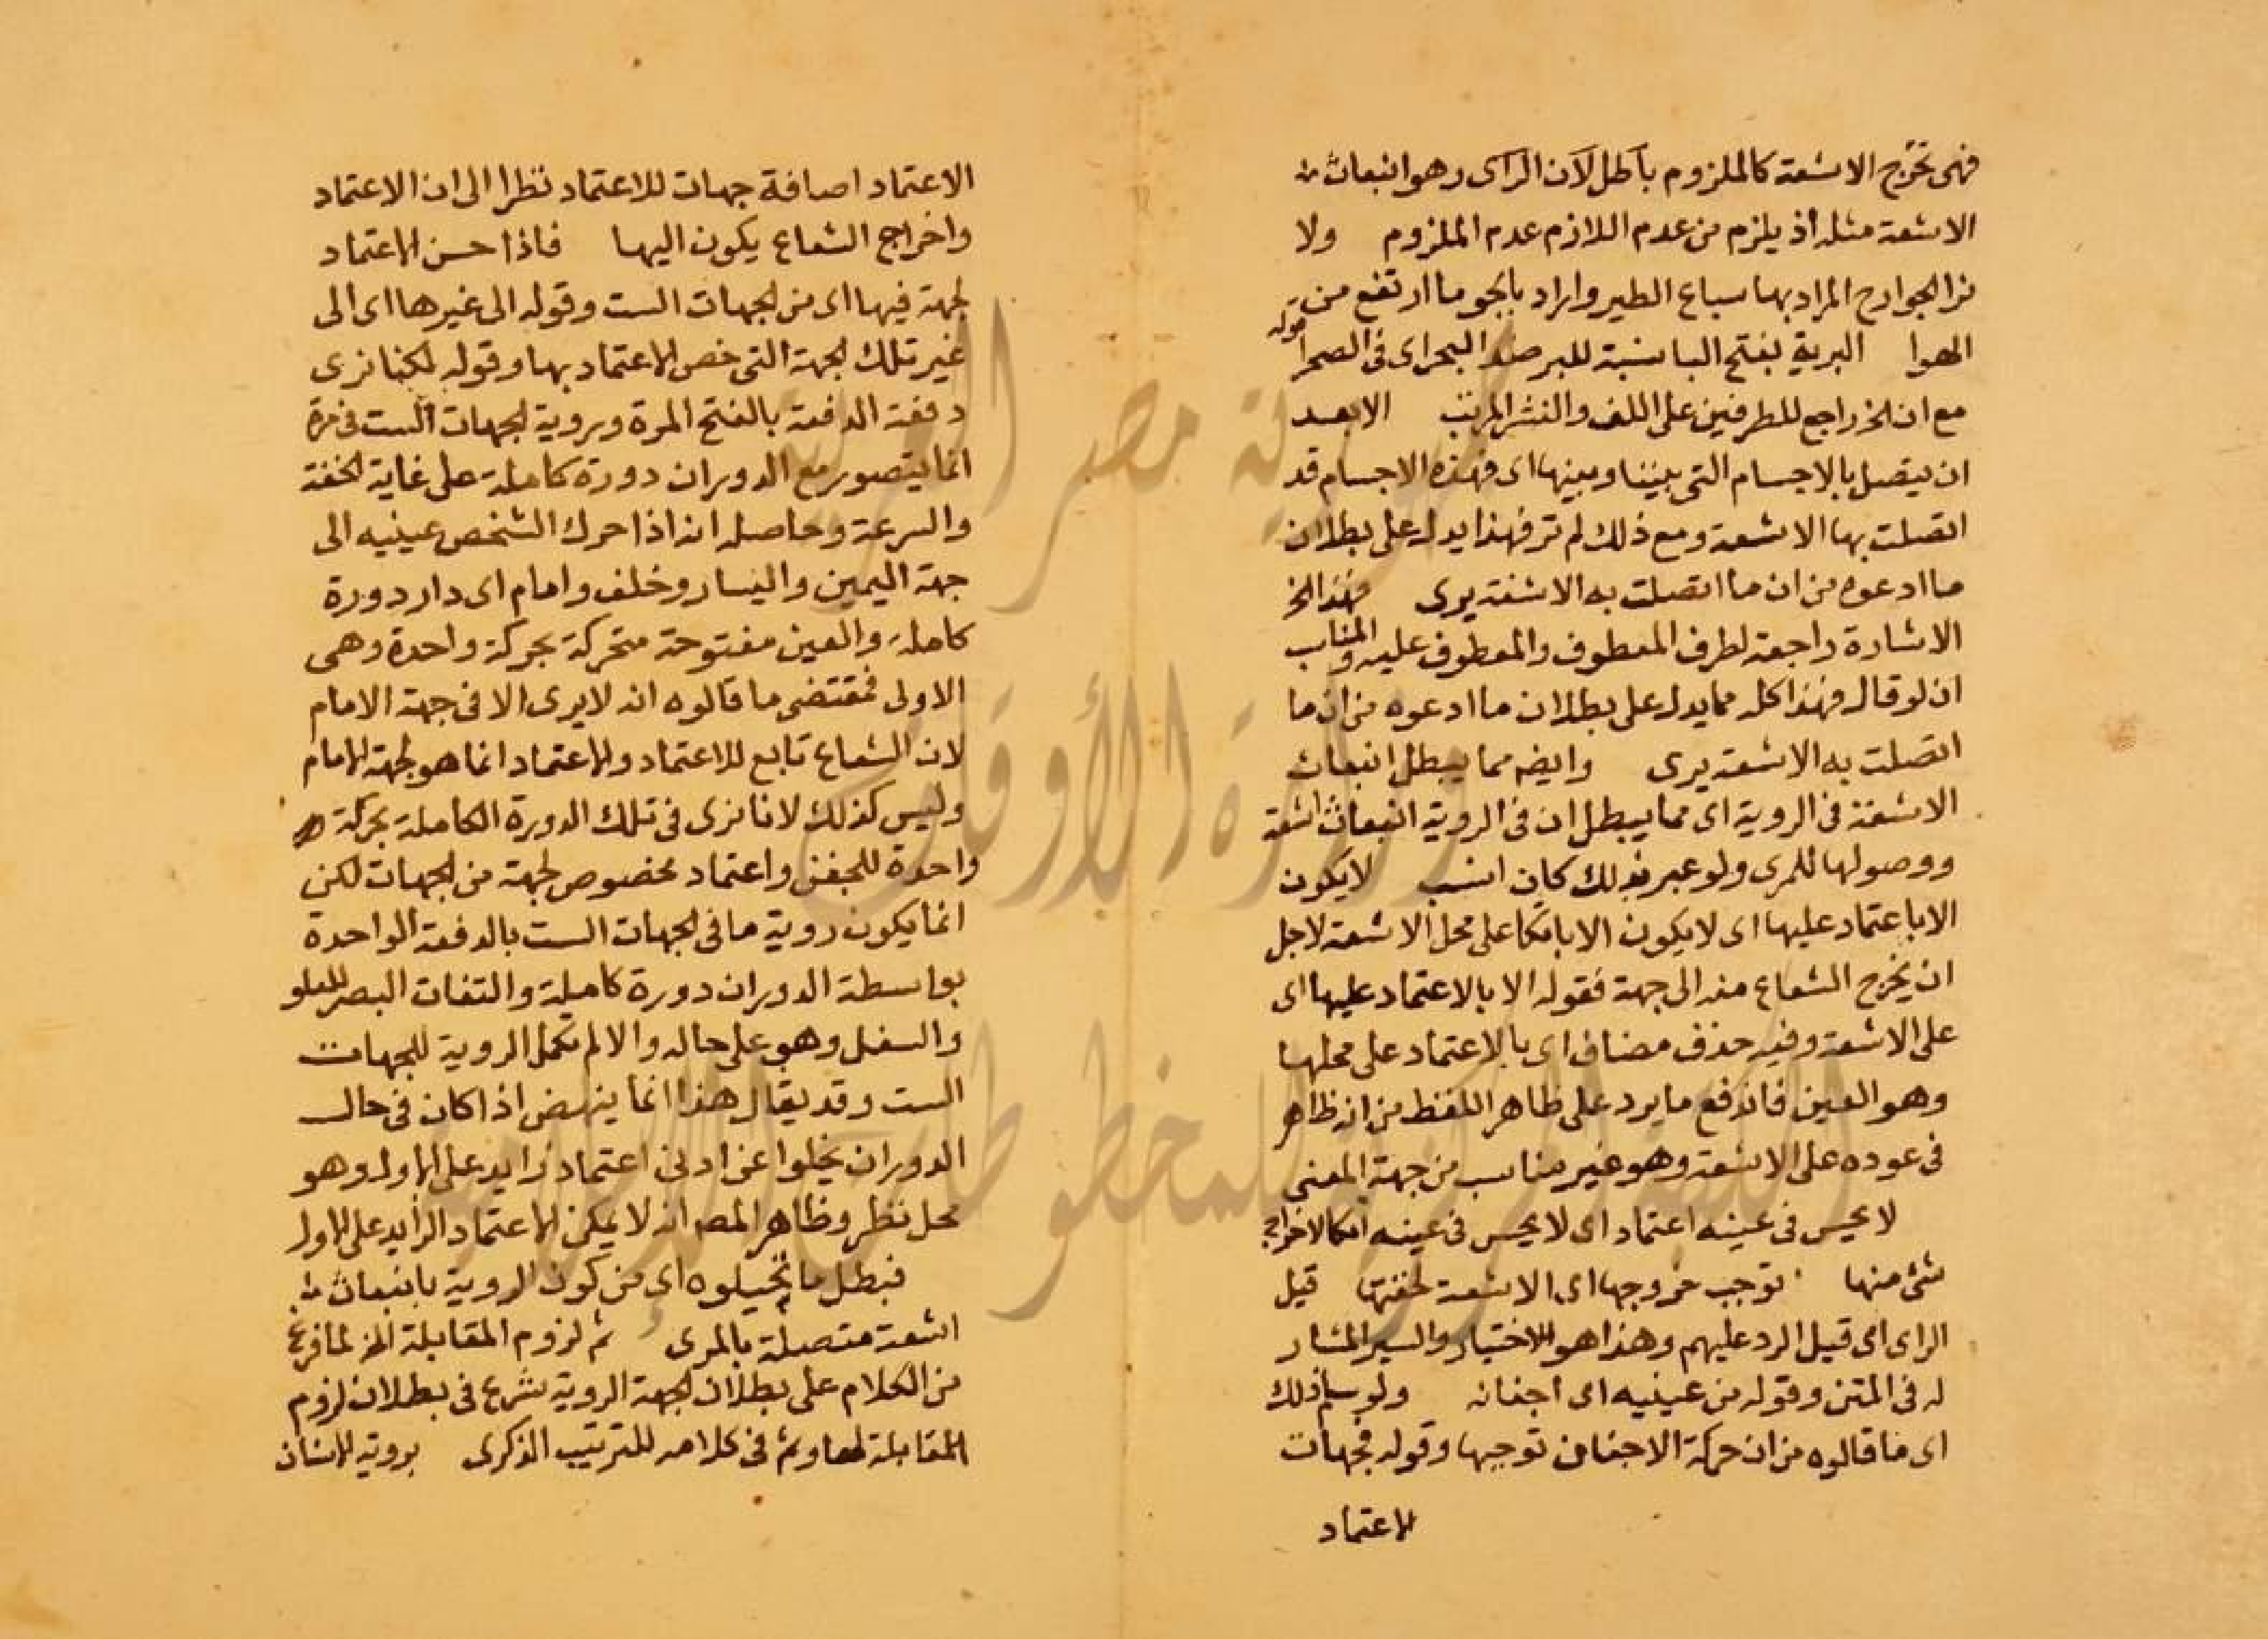 فهى تخرج الاشعة كالملزوم باطل لان الراى وهو انبعاث
الاشعة مثله اذ يلزم من عدم اللازم عدم الملزوم ولا
نر الجوارح المراد بها سباع الطير واراد بالجو ما ارتفع من
الهوا البرية بفتح البا نسبة للبر ضد البحر اى فى الصحرا
قوله
مع ان الخ راجع للطرفين على اللف والنشر المرتب الابعد
ان يتصل بالاجسام التى بيننا وبينها اى فهذه الاجسام قد
اتصلت بها الاشعة ومع ذلك لم تر فهذا يدل على بطلان
ما ادعوه من ان ما اتصلت به الاشعة يرى فهذا الخ
الاشارة راجعة لطرف المعطوف والمعطوف عليه والمناسب
ان لو قال فهذا كله مما يدل على بطلان ما ادعوه من ان ما
اتصلت به الاشعة يرى وايضه مما يبطل انبعاث
الاشعة فى الروية اى مما يبطل ان فى الروية انبعاث اشعة
ووصولها للمرى ولو عبر بذلك كان انسب لا يكون
الا باعتماد عليها اى لا يكون الا باتكا على محل الاشعة لاجل
ان يخرج الشعاع منه الى جهة فقوله الا بالاعتماد عليها اى
على الاشعة وفيه حذف مضاف اى بالاعتماد على محلها
وهو العين فاندفع ما يرد على ظاهر اللفظ من ان ظاهر
فى عوده على الاشعة وهو غير مناسب من جهة المعنى
لا يحس فى عينه اعتماد اى لا يحس فى عينه اتكا لاخراج
شئ منها توجب خروجها اى الاشعة لخفتها قيل
الراى اى قيل الرد عليهم وهذا هو الاختيار والسير المشار
له فى المتن وقوله من عينيه اى اجفانه ولو سلم ذلك
اى ما قالوه من ان حركة الاجفان توجبها وقوله فجهات
الاعتماد
الاعتماد اضافة جهات للاعتماد نظرا الى ان الاعتماد
واخراج الشعاع يكون اليها فاذا حسن الاعتماد
لجهة فيها اى من الجهات الست وقوله الى غيرها اى الى
غير تلك الجهة التى خص الاعتماد بها وقوله لكنا نرى
دفعة الدفعة بالفتح المرة وبروية الجهات الست فى مرة
انما يتصور مع الدوران دورة كاملة على غاية الخفة
والسرعة وحاصله انه اذا حرك الشخص عينيه الى
جهة اليمين واليسار وخلف وامام اى دار دورة
كاملة والعين مفتوحة متحركة بحركة واحدة وهى
الاولى فمقتضى ما قالوه انه لا يرى الا فى جهة الامام
لان الشعاع تابع للاعتماد والاعتماد انما هو لجهة الامام
وليس كذلك لانا نرى فى تلك الدورة الكاملة بحركة
واحدة للجفن واعتماد مخصوص لجهة من الجهات لكن
انما يكون روية ما فى الجهات الست بالدفعة الواحدة
بواسطة الدوران دورة كاملة والتفات البصر للعلو
والسفل وهو على حاله والا لم تكمل الروية للجهات
الست وقد يقال هذا انما ينهض اذا كان فى حال
الدوران يخلوا عن ادنى اعتماد زايد على الاول وهو
محل نظر وظاهر المصه انه لا يمكن الاعتماد الزايد على الاول
فبطل ما تخيلوه اى من كون الروية بانبعاث
اشعة متصلة بالمرى ثم لزوم المقابلة الخ لما فرغ
من الكلام على بطلان لجهة الروية شرع فى بطلان لزوم
المقابلة لها وثم فى كلامه للترتيب الذكرى بروية الانسان